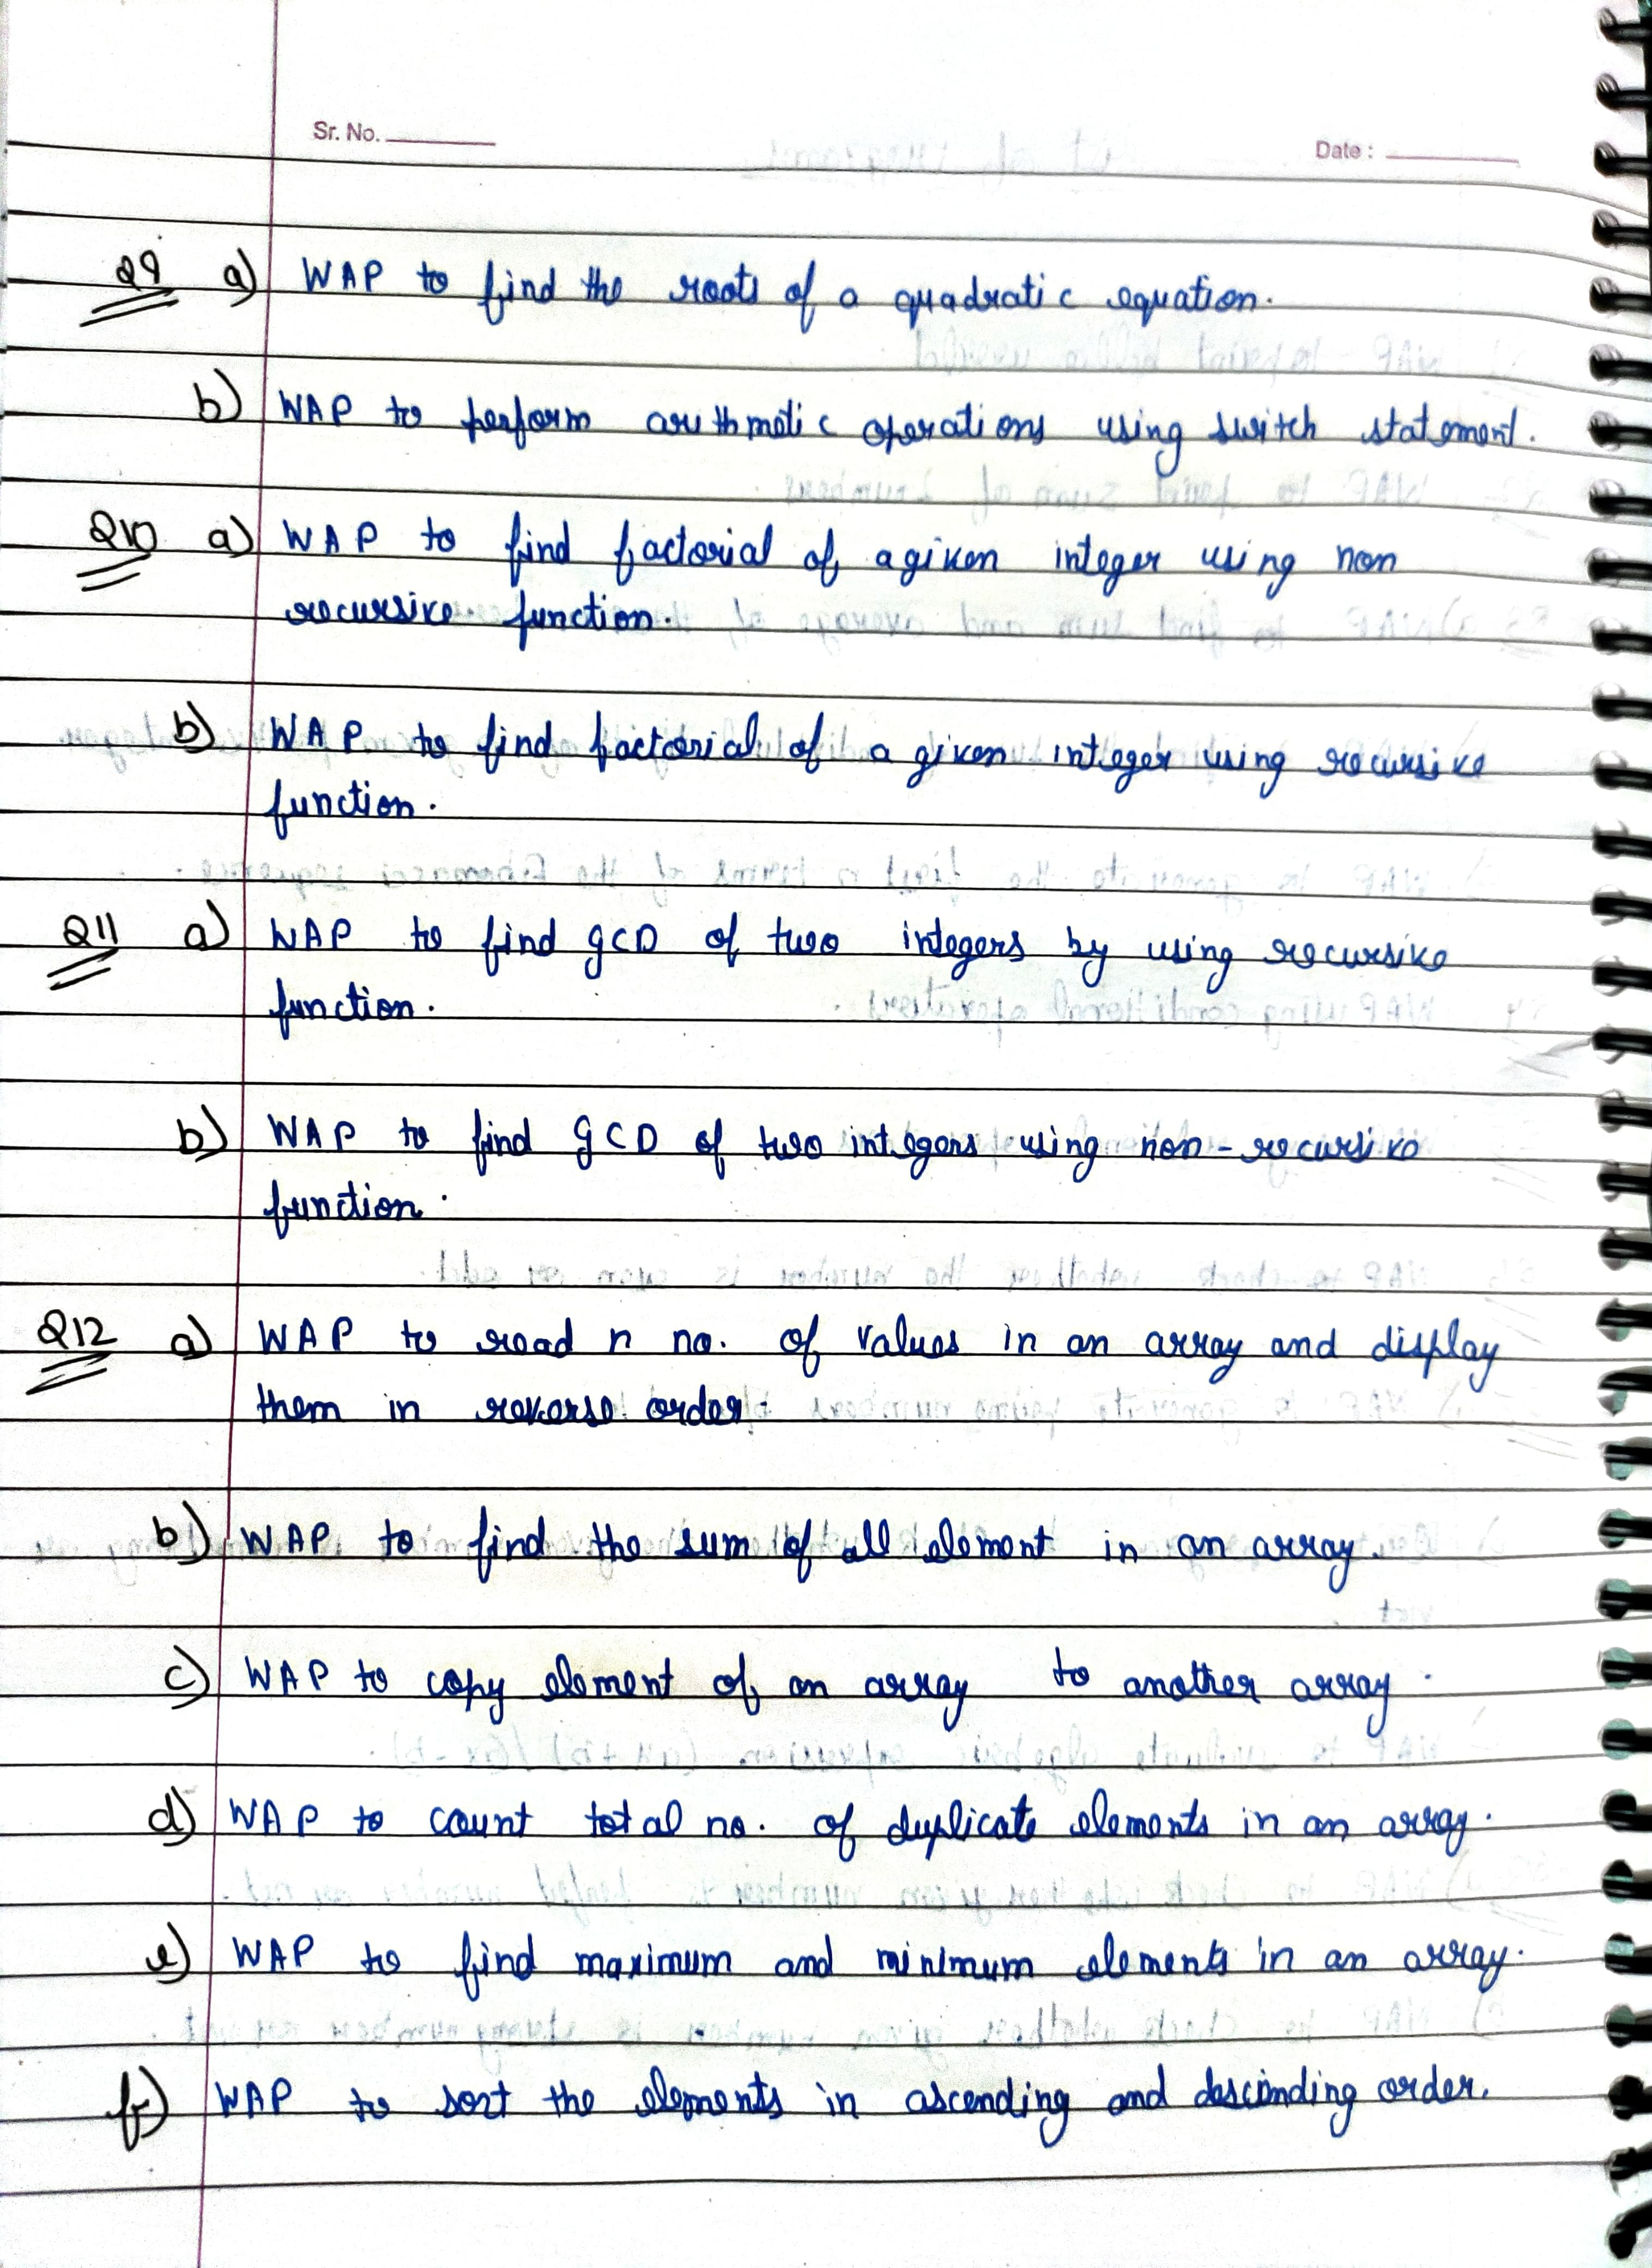 Sr. No.
Date :
Q9 a) WAP to find the roots of a quadratic equation.
b) WAP to perform arithmetic operations using switch statement.
Q10 a) WAP to find factorial of a given integer using non
recursive function.
b) WAP to find factorial of a given integer using recursive
function.
Q11 a) WAP to find GCD of two integers by using recursive
function.
b) WAP to find GCD of two integers using non-recursive
function.
Q12 a) WAP to read n no. of values in an array and display
them in reverse order.
b) WAP to find the sum of all element in an array.
c) WAP to copy element of an array to another array.
d) WAP to count total no. of duplicate elements in an array.
e) WAP to find maximum and minimum elements in an array.
f) WAP to sort the elements in ascending and descending order.